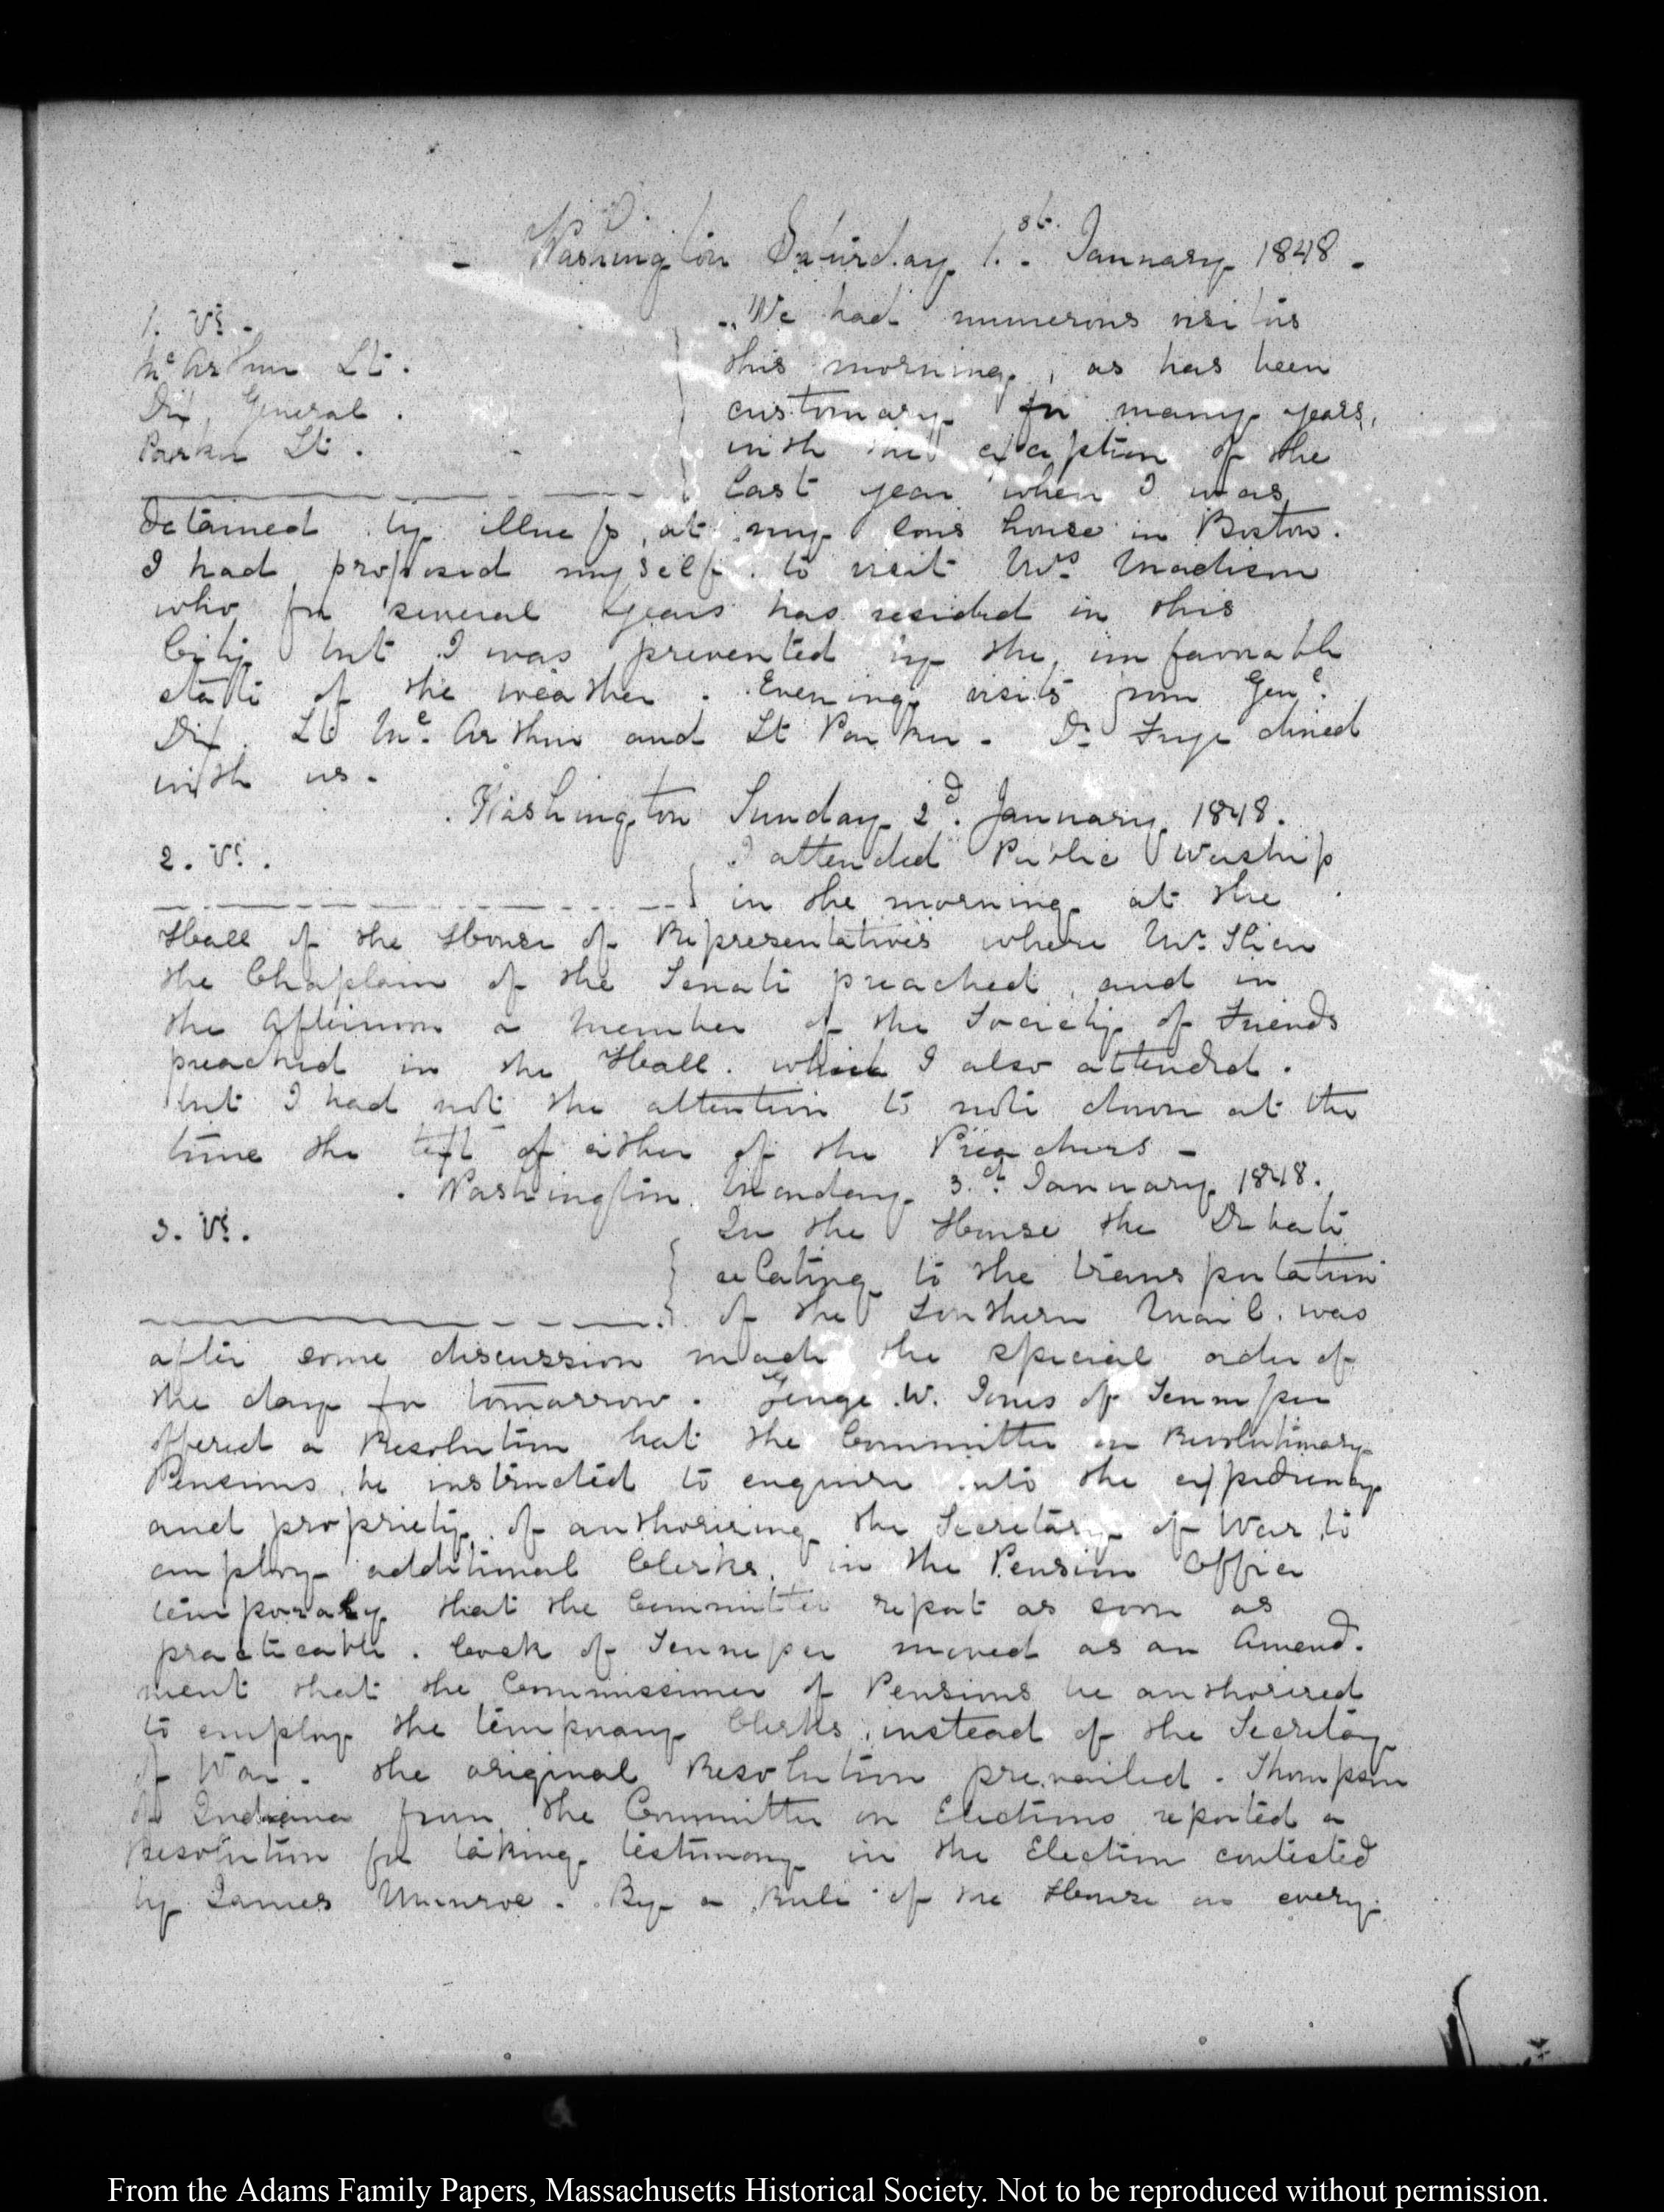 - Washington Saturday 1.st January 1848.
1. V:s.
McArthur Lt.
Dix, General.
Parker Lt.
We had numerous visitors
this morning, as has been
customary for many years,
with the exception of the
last year when I was
detained by illness, at my sons house in Boston.
I had proposed myself to visit Mrs Madison
who for several years has resided in this
City but I was prevented by the unfavorable
state of the weather. Evening visits from Genl.
Dix. Lt McArthur and Lt Parker. Dr Frye dined
with us.
Washington Sunday 2d. January 1848.
2. V:s.
I attended Public Worship
in the morning at the
Hall of the House of Representatives where Mr Slicer
the Chaplain of the Senate preached, and in
the afternoon a Member of the Society of Friends
preached in the Hall. which I also attended.
but I had not the attention to note down at the
time the text of either of the Preachers -
Washington Monday 3.d January 1848.
3. V:s.
In the House the Debate
relating to the transportation
of the Southern Mail. was
after some discussion made the special order of
the day for tomorrow. George W. Jones of Tennessee
offered a Resolution that the Committee on Revolutionary
Pensions, be instructed to enquire into the expediency
and propriety of authorising the Secretary of War to
employ additional Clerks, in the Pension Office
temporary that the Committee report as soon as
practicable. Cock of Tennessee moved as an Amend-
ment that the Commissioner of Pensions be authorised
to employ the temporary Clerks, instead of the Secretary
of War. the original Resolution prevailed. Thompson
of Indiana from the Committee on Elections reported a
Resolution for taking testimony in the Election contested
by James Munroe. By a Rule of the House on every
From the Adams Family Papers, Massachusetts Historical Society. Not to be reproduced without permission.